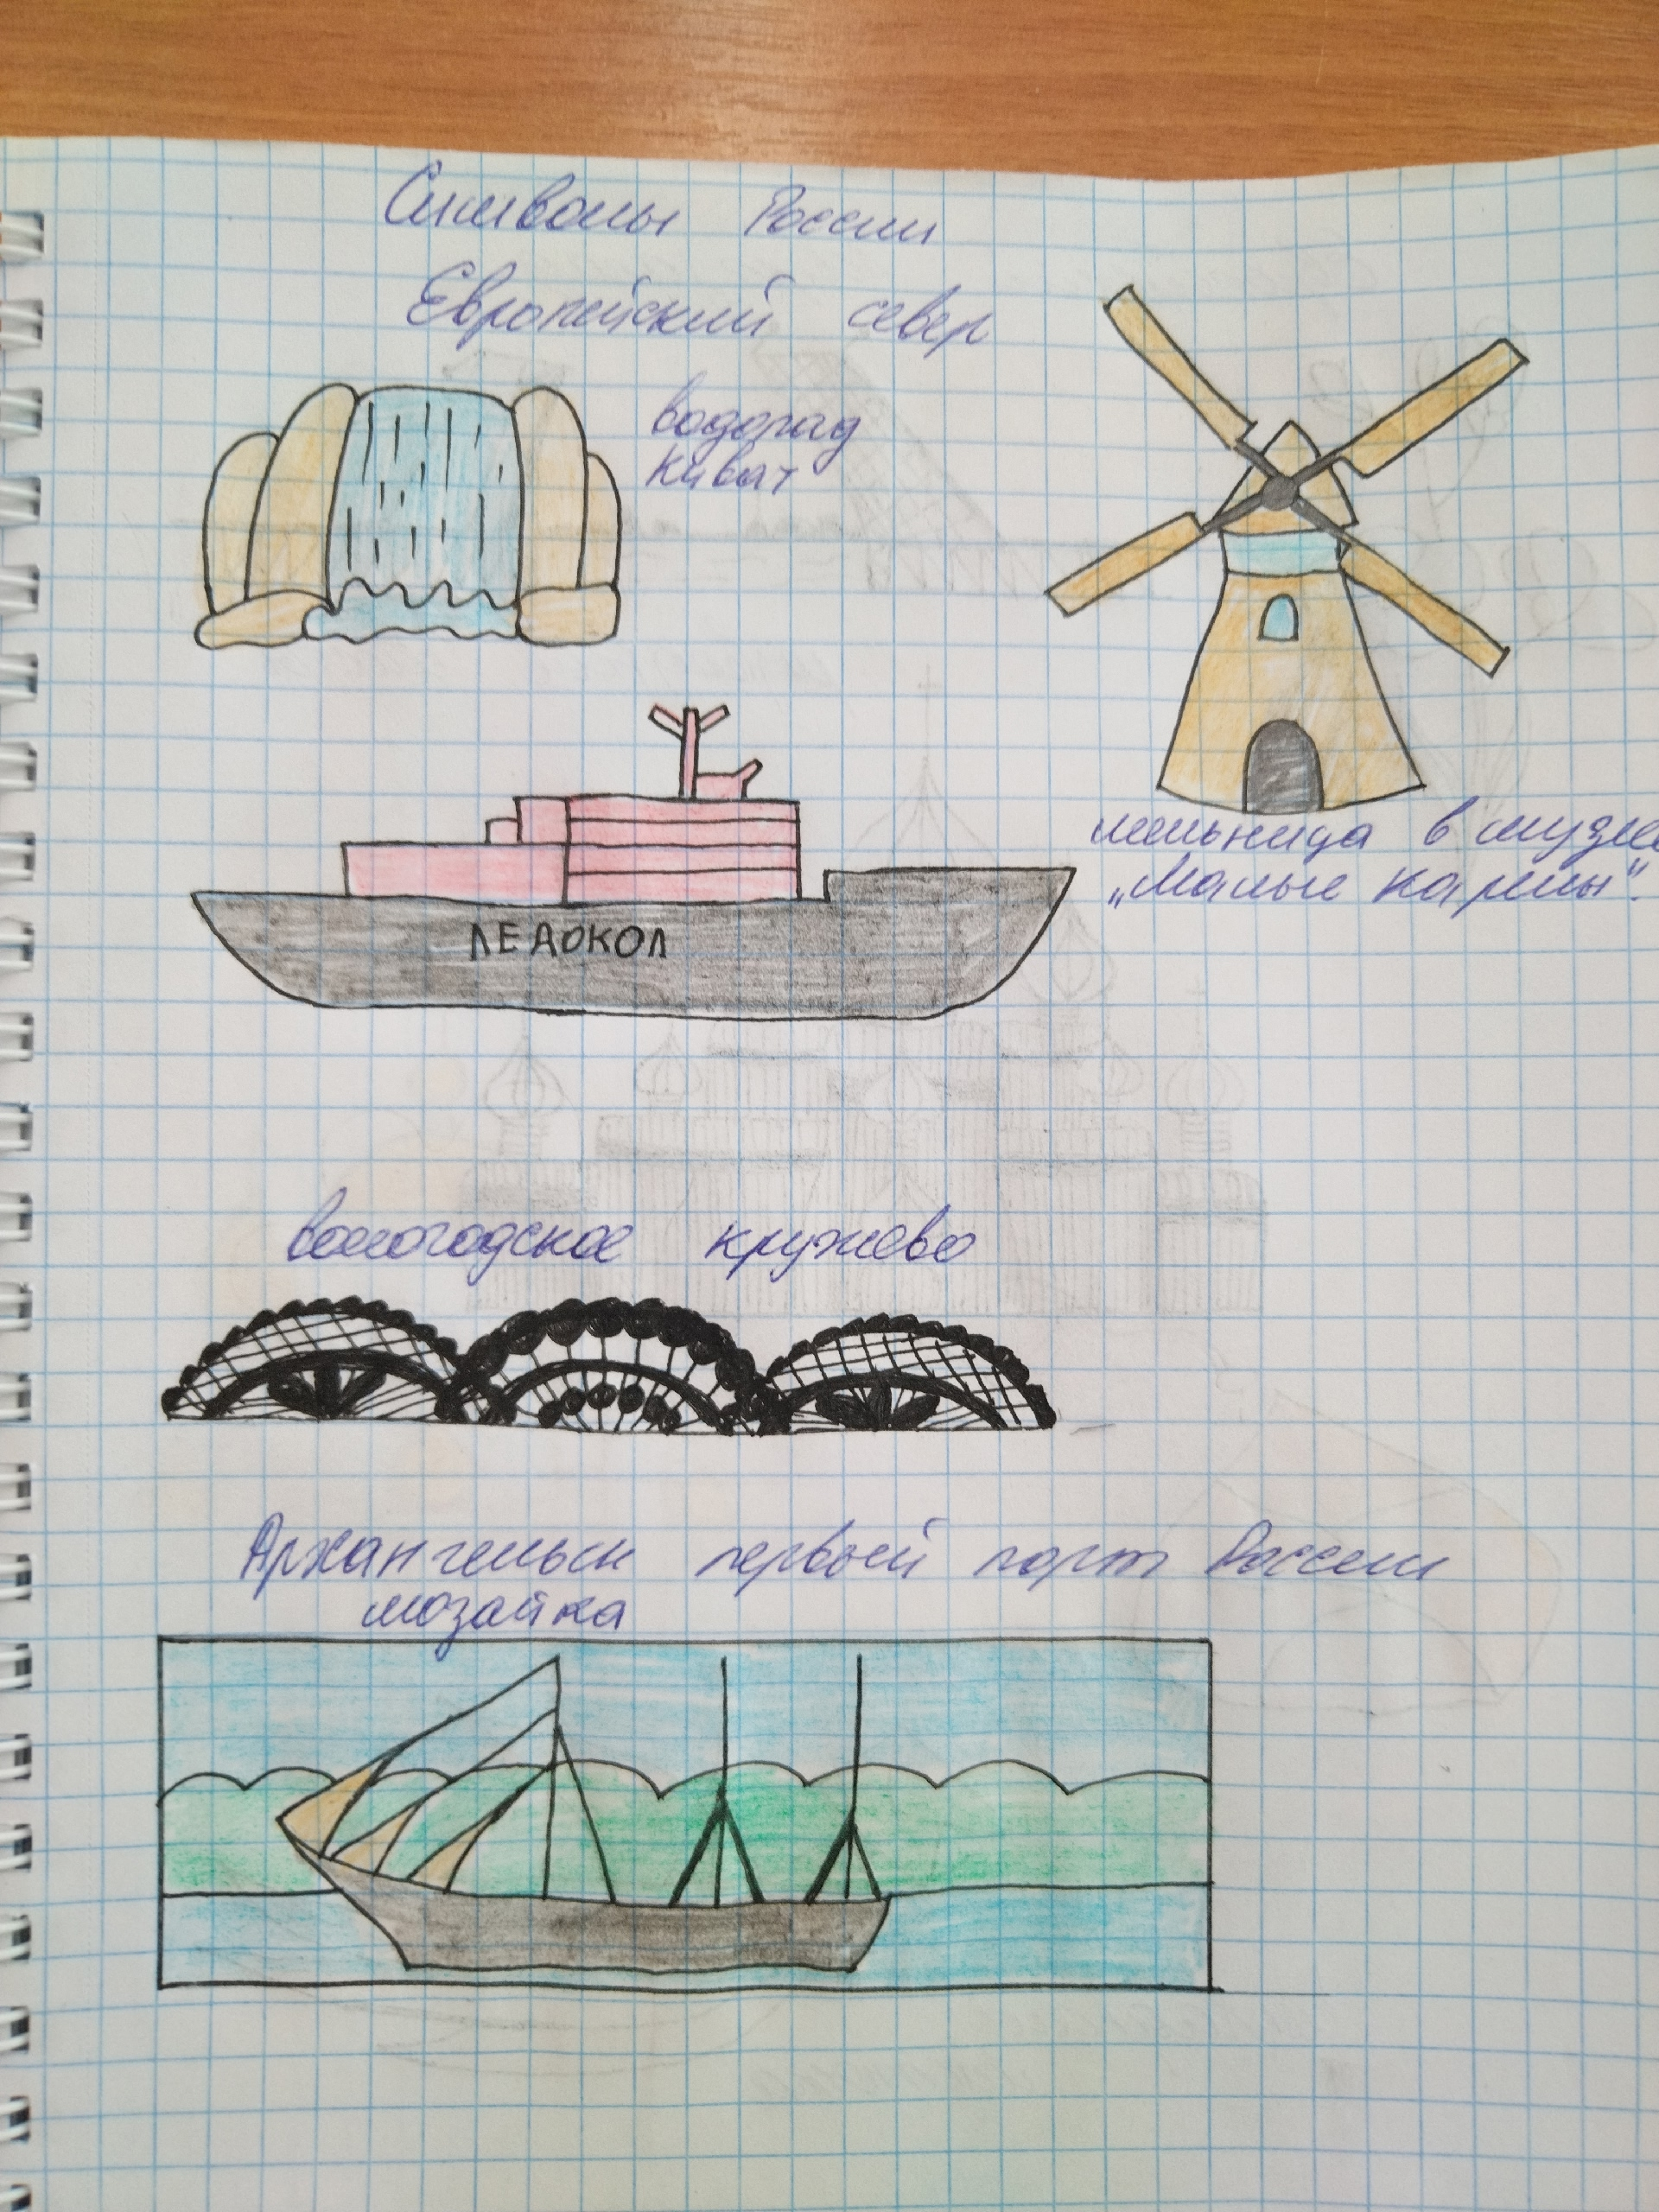 Символы России
Европейский север
водопад
Киват
мельница в музее
„Малые карелы".
ЛЕДОКОЛ
вологодское кружево
Архангельск первый порт России
мозайка